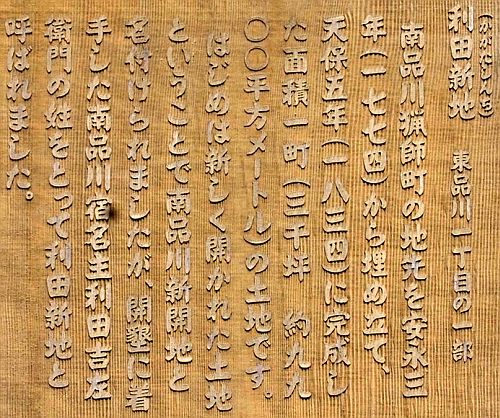 (かがたしんち)
利田新地　東品川一丁目の一部
南品川猟師町の地先を安永三
年(一七七四)から埋め立て、
天保五年(一八三四)に完成し
た面積一町(三千坪　約九九
〇〇平方メートル)の土地です。
はじめは新しく開かれた土地
ということで南品川新開地と
名付けられましたが、開墾に着
手した南品川宿名主利田吉左
衛門の姓をとって利田新地と
呼ばれました。